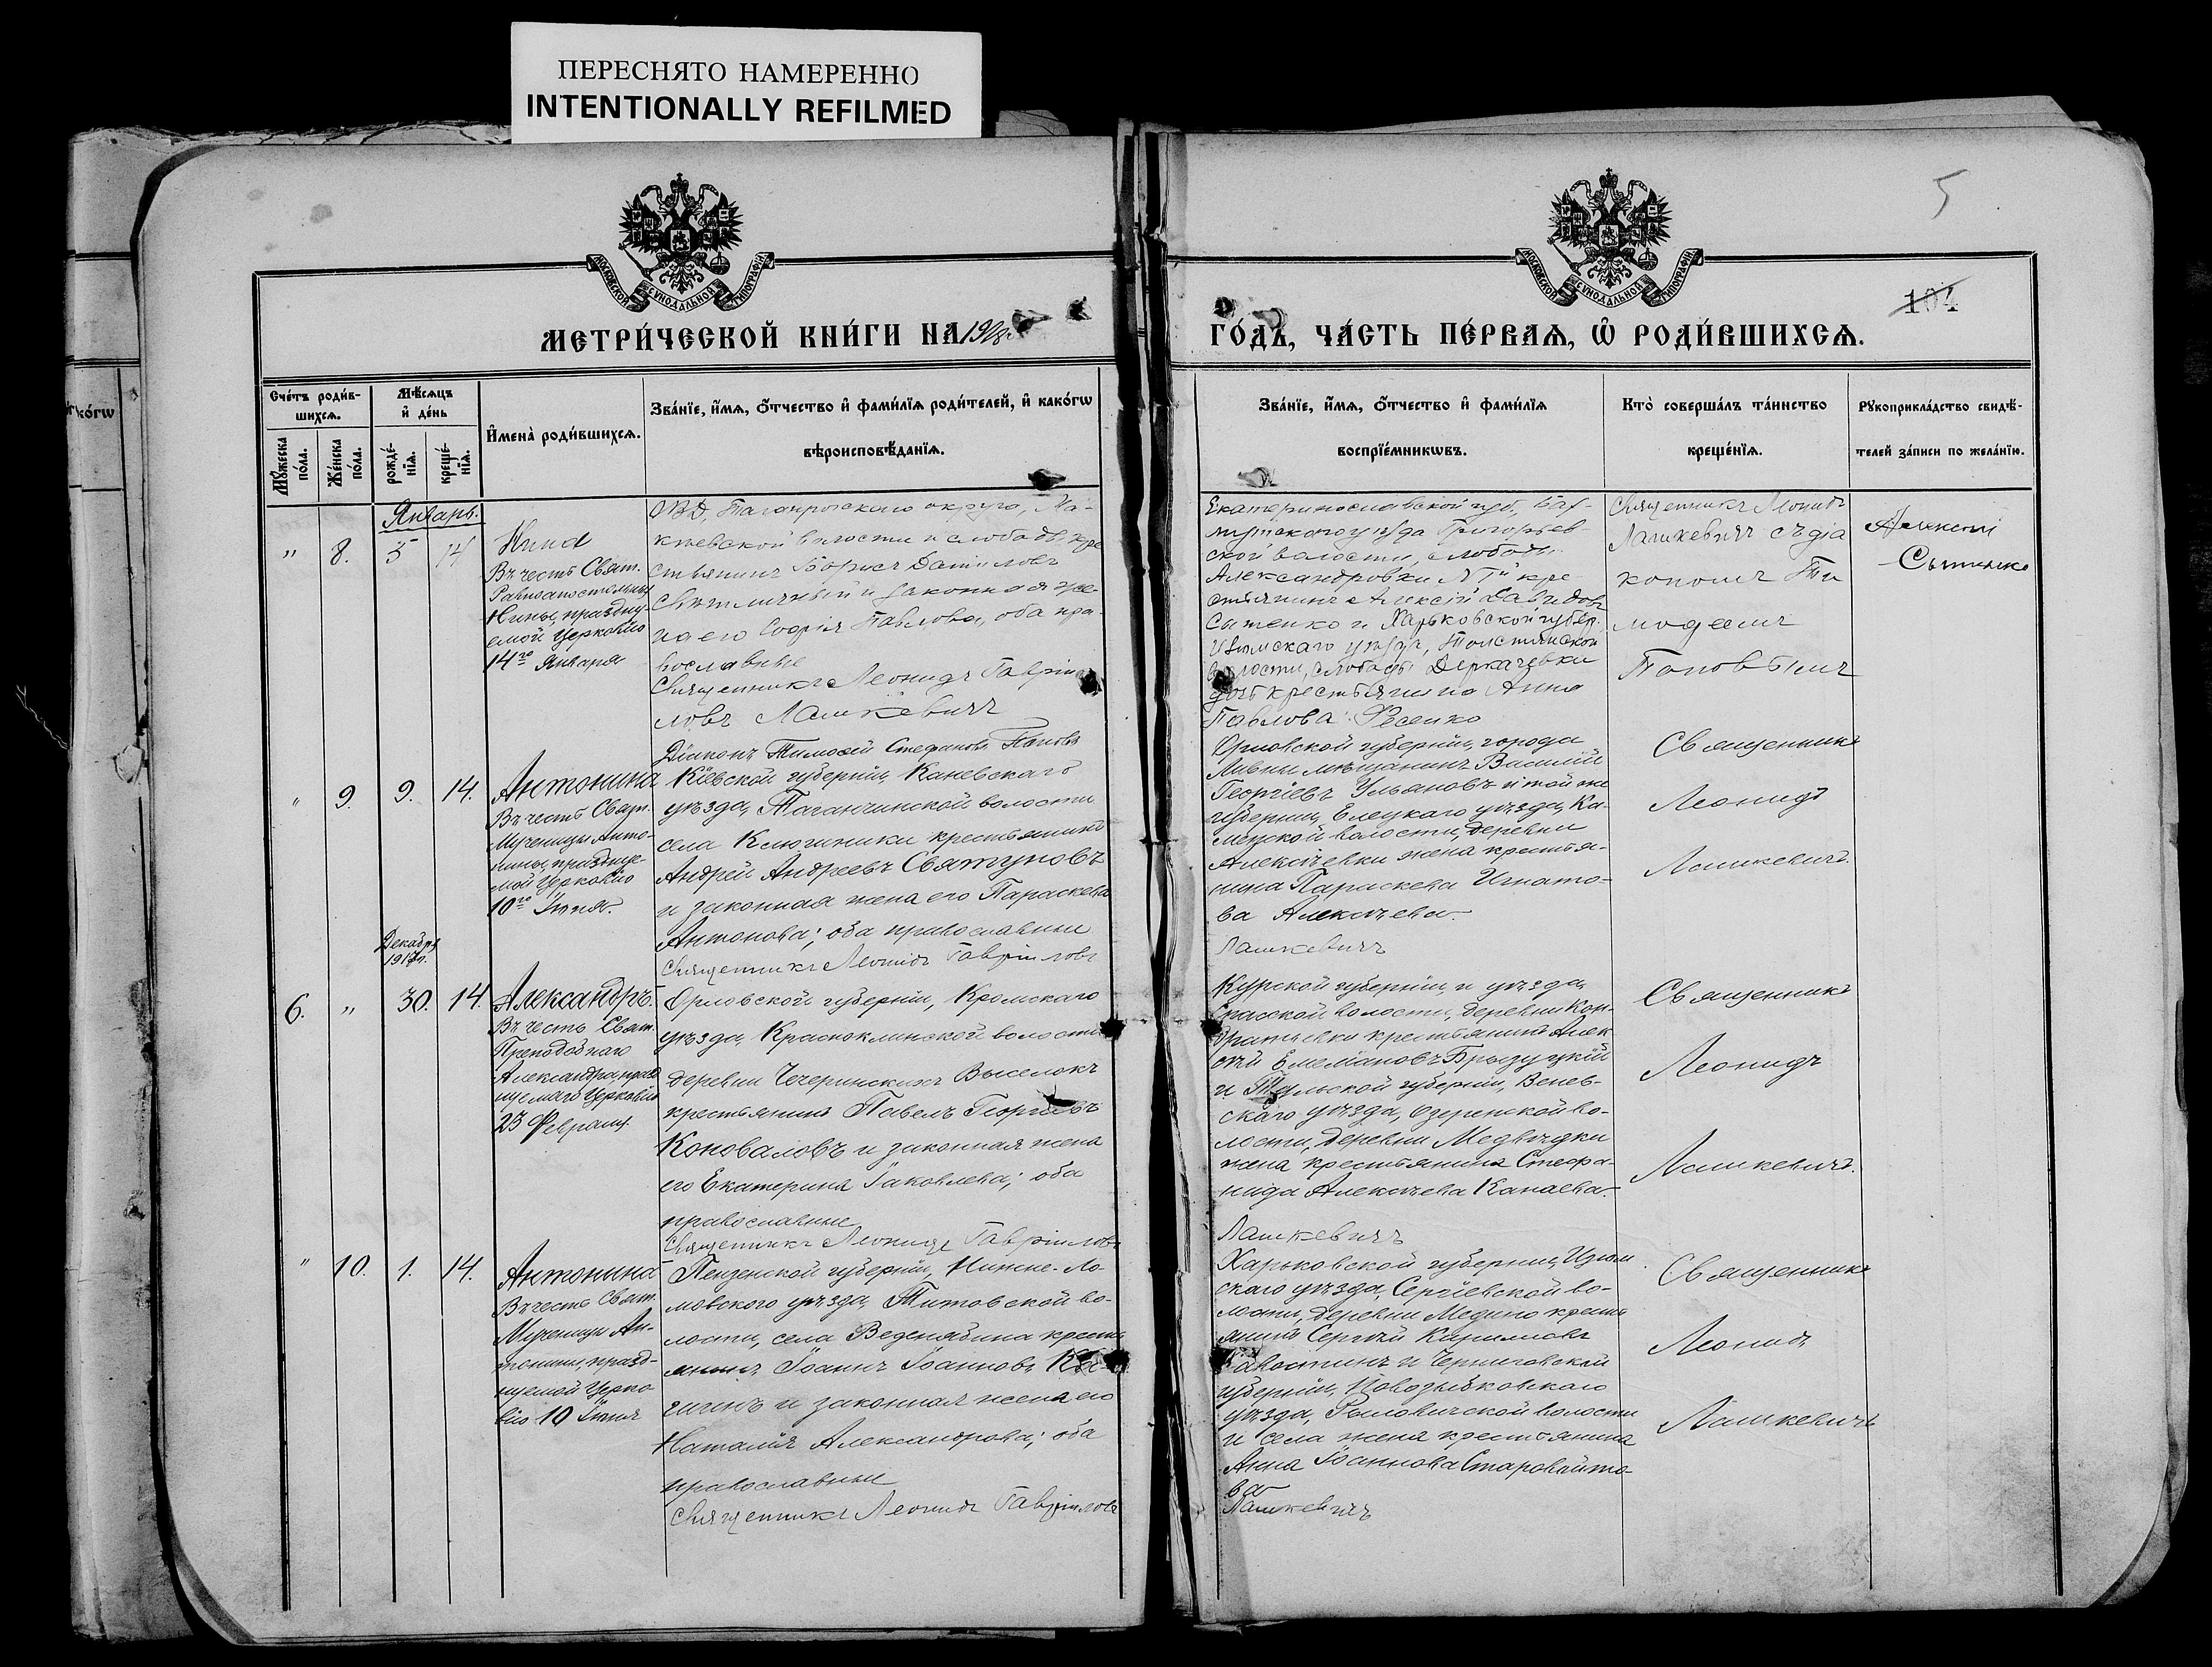 ПЕРЕСНЯТО НАМЕРЕННО
INTENTIONALLY REFILMED
5
МОСКОВСКОЙ СѴНОДАЛЬНОЙ ТИПОГРАФІИ
МОСКОВСКОЙ СѴНОДАЛЬНОЙ ТИПОГРАФІИ
104
МЕТРИ́ЧЕСКОЙ КНИ́ГИ НА 1918
ГО́ДЪ, ЧА́СТЬ ПЕ́РВАѦ, Ѡ҆ РОДИ́ВШИХСѦ.
Сче́тъ роди́в-
шихсѧ.
Мꙋ́жеска по́ла.
Же́нска по́ла.
Мѣ́сѧцъ
и҆ де́нь
рожде́-
нїѧ.
креще́-
нїѧ.
И҆мена̀ роди́вшихсѧ.
Зва́нїе, и҆́мѧ, ѻ҆́тчество и҆ фами́лїѧ роди́телей, и҆ како́гѡ
вѣроисповѣ́данїѧ.
Зва́нїе, и҆́мѧ, ѻ҆́тчество и҆ фами́лїѧ
воспрїе́мникѡвъ.
Кто̀ соверша́лъ та́инство
креще́нїѧ.
Рꙋкоприкла́дство свидѣ́-
телей за́писи по жела́нїю.
Январь.
" 8. 5 14
Нина
Въ честь Свят.
Равноапостольныя
Нины, праздну-
емой Церковію
14го Января
ОВД, Таганрогскаго округа, Ма-
кѣевской волости и слободы, кре
стьянинъ Борисъ Даніиловъ
и законная же-
на его Софія Павлова, оба пра-
вославные
Священникъ Леонидъ Гавріи
ловъ Лашкевичъ
Діаконъ Тимоѳей Стефановъ Поповъ
Екатеринославской губ, Бах-
мутскаго уѣзда Григорьев-
ской волости, слободы
Александровки № 1й кре
стьянинъ Алексій Давидовъ
Сытенко и Харьковской губер.
Изюмскаго уѣзда,
волости, слободы Деркачевки
дочь крестьянина Анна
Павлова Фесенко
Священникъ Леонидъ
Лашкевичъ съ діа
кономъ Ти
моѳеемъ
Поповымъ
Алексій
Сытенко
" 9. 9. 14.
Антонина
Въ честь Свят.
Мученицы Анто-
нины, праздну-
мой Церковію
10го Іюня.
Кіевской губерніи, Каневскаго
уѣзда, Таганчинской волости
села крестьянинъ
Андрей Андреевъ Святуновъ
и законная жена его Параскева
Антонова; оба православные
Священникъ Леонидъ Гавріиловъ
Орловской губерніи, города
Ливны мѣщанинъ Василій
Георгіевъ Ульяновъ и той же
губерніи, Елецкаго уѣзда, Ка-
менской волости, деревни
жена крестья-
нина Параскева Игнато-
ва Алексѣева.
Лашкевичъ
Священникъ
Леонидъ
Лашкевичъ.
Декабрь
1917г.
6. " 30. 14.
Александръ.
Въ честь Свят.
Преподобнаго
Александра, празд
нуемаго Церковію
23 Февраля.
Орловской губерніи, Кромскаго
уѣзда, Красноклинской волости
деревни Чечеринскихъ Выселокъ
крестьянинъ Павелъ Георгіевъ
Коноваловъ и законная жена
его Екатерина Іаковлева; оба
православные
Священникъ Леонидъ Гавріиловъ
Курской губерніи, и уѣзда,
Спасской волости, деревни Кон-
дратьевки крестьянинъ Алек
сѣй Емеліановъ
и Тульской губерніи, Венев-
скаго уѣзда, Озеренской во-
лости, деревни Медвѣдки
жена крестьянина Стефа-
нида Алексѣева Канаева.
Лашкевичъ
Священникъ
Леонидъ
Лашкевичъ.
" 10. 1. 14.
Антонина
Въ честь Свят.
Мученицы Ан-
тонины, празд-
нуемой Церко
вію 10 Іюня
Пензенской губерніи, Нижне-Ло-
мовского уѣзда, Титовской во-
лости, села Веденяпина крест
янинъ Іоаннъ Іоанновъ
и законная жена его
Наталія Александрова; оба
православные
Священникъ Леонидъ Гавріиловъ
Харьковской губерніи, Изюм
скаго уѣзда, Сергіевской во-
лости, деревни Медино кресть
янинъ Сергѣй Кирилловъ
и Черниговской
губерніи, Новозыбковскаго
уѣзда, волости
и села жена крестьянина
Анна Іоаннова Старовойто-
ва
Лашкевичъ
Священникъ
Леонидъ
Лашкевичъ